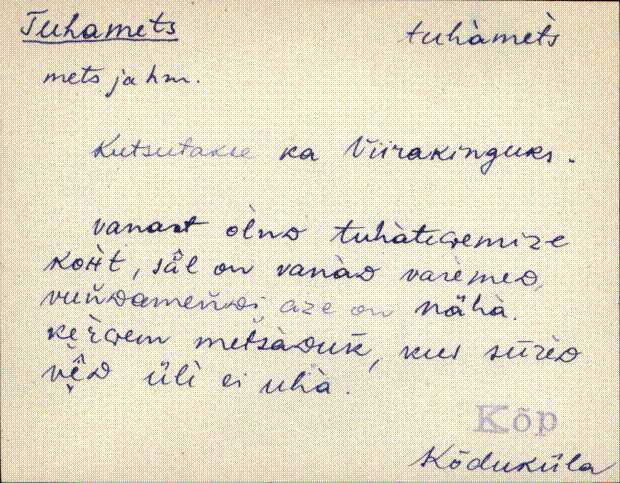 Tuhamets tuhàmets
mets ja hm.
Kutsutakse ka Viirakinguks.
vanast olnᴅ tuhàtegemize
koht, säl on vanàᴅ varèmeᴅ,
vuňdameňdi aze on nähà.
metsàduk, kus sūrèᴅ
üli ei uhà.
Kõp
Kõduküla